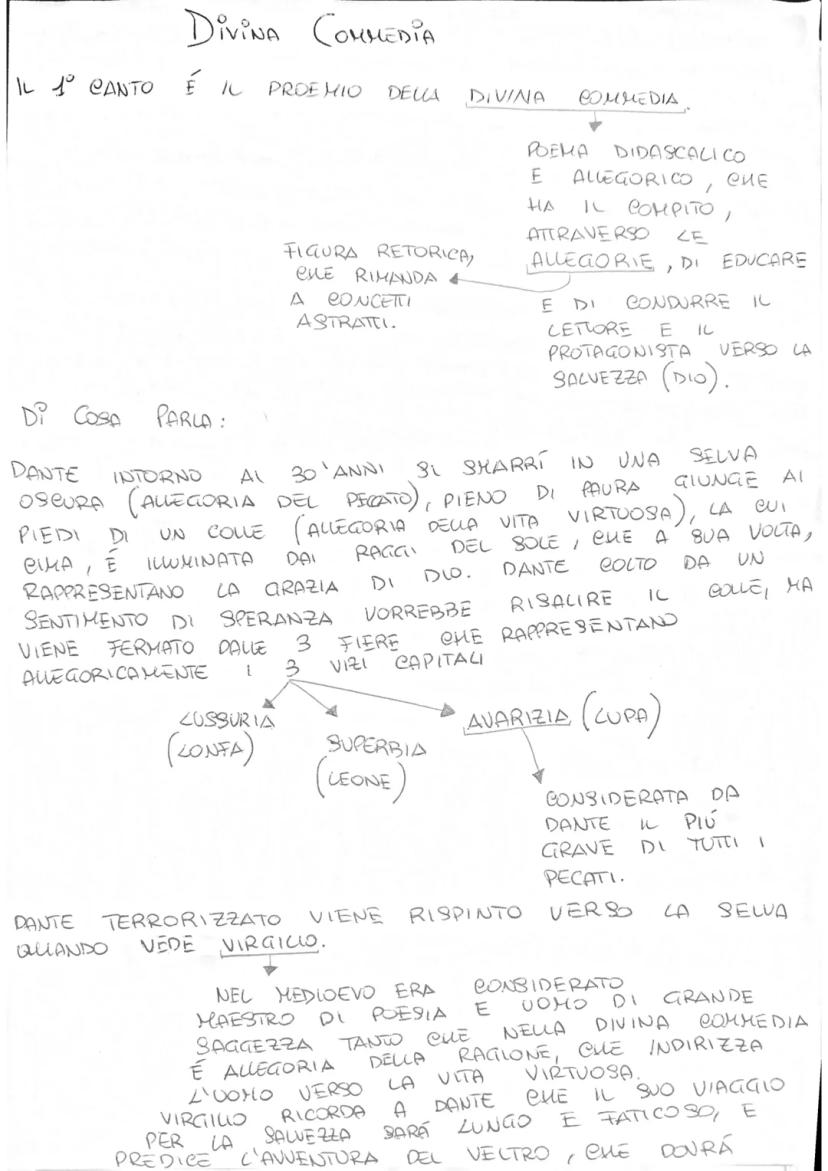 DIVINA COMMEDIA
IL 1° CANTO É IL PROEMIO DELLA DIVINA COMMEDIA.
POEMA DIDASCALICO
E ALLEGORICO, CHE
HA IL COMPITO,
ATTRAVERSO LE
ALLEGORIE, DI EDUCARE
E DI CONDURRE IL
LETTORE E IL
PROTAGONISTA VERSO LA
SALVEZZA (DIO).
FIGURA RETORICA,
CHE RIMANDA
A CONCETTI
ASTRATTI.
DI COSA PARLA:
DANTE INTORNO AI 30'ANNI SI SMARRÍ IN UNA SELVA
OSCURA (ALLEGORIA DEL PECCATO), PIENO DI PAURA GIUNGE AI
PIEDI DI UN COLLE (ALLEGORIA DELLA VITA VIRTUOSA), LA CUI
CIMA, É ILLUMINATA DAI RAGGI DEL SOLE, CHE A SUA VOLTA,
RAPPRESENTANO LA GRAZIA DI DIO. DANTE COLTO DA UN
SENTIMENTO DI SPERANZA VORREBBE RISALIRE IL COLLE, MA
VIENE FERMATO DALLE 3 FIERE CHE RAPPRESENTANO
ALLEGORICAMENTE I 3 VIZI CAPITALI
LUSSURIA
(LONFA)
SUPERBIA
(LEONE)
AVARIZIA (LUPA)
CONSIDERATA DA
DANTE IL PIÚ
GRAVE DI TUTTI I
PECATI.
DANTE TERRORIZZATO VIENE RISPINTO VERSO LA SELVA
QUANDO VEDE VIRGILIO.
NEL MEDIOEVO ERA CONSIDERATO
MAESTRO DI POESIA E UOMO DI GRANDE
SAGGEZZA TANTO CHE NELLA DIVINA COMMEDIA
É ALLEGORIA DELLA RAGIONE, CHE INDIRIZZA
L'UOMO VERSO LA VITA VIRTUOSA.
VIRGILIO RICORDA A DANTE CHE IL SUO VIAGGIO
PER LA SALVEZZA SARÁ LUNGO E FATICOSO, E
PREDICE L'AVVENTURA DEL VELTRO, CHE DOVRÁ